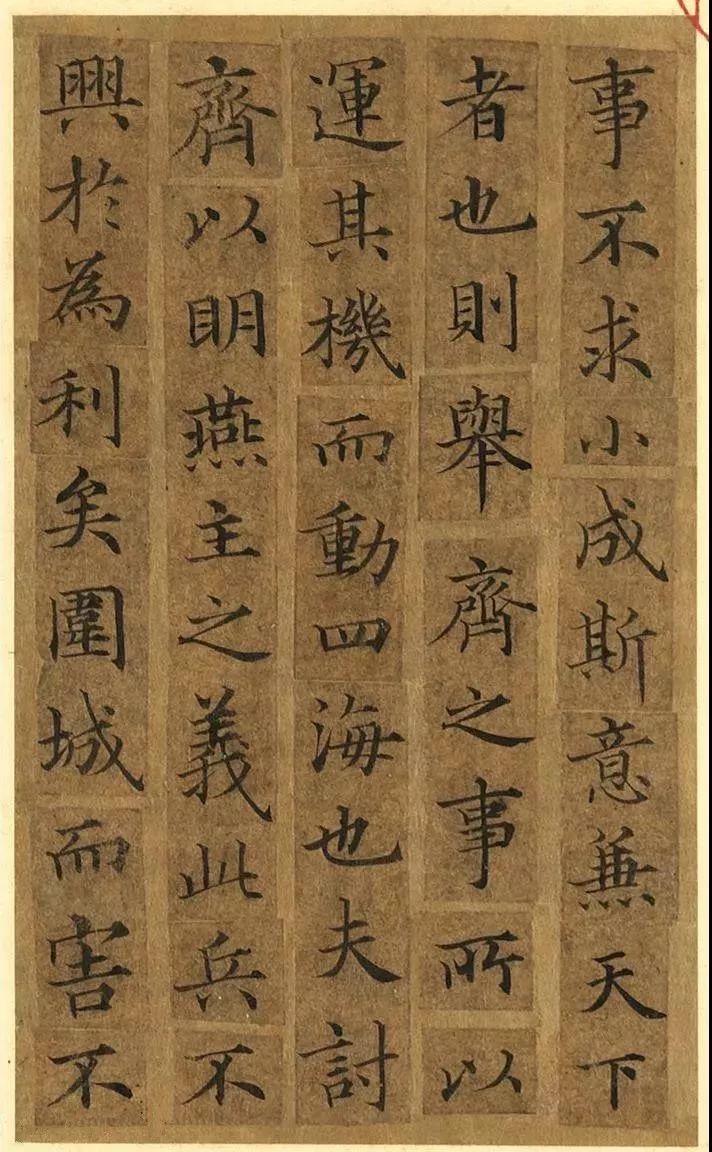 事不求小成斯意兼天下
者也則舉齊之事所以
運其機而動四海也夫討
齊以明燕主之義此兵不
興於為利矣圍城而害不